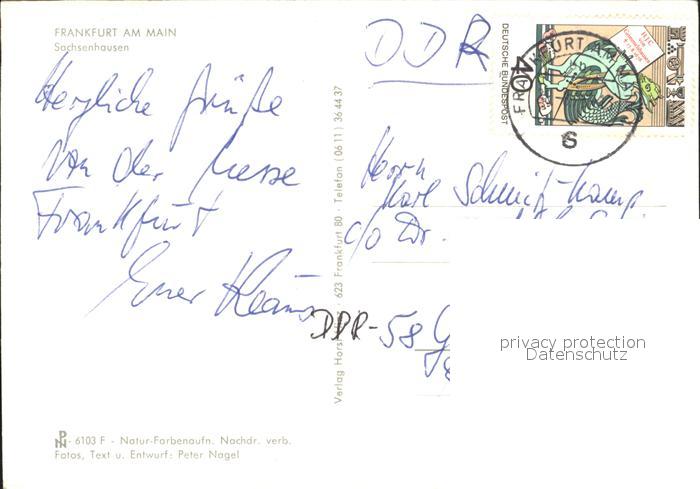 FRANKFURT AM MAIN
Sachsenhausen
Herzliche Grüße
von der Messe
Frankfurt
Euer Klaus
DDR
DEUTSCHE BUNDESPOST
40
FRANKFURT AM MAIN
6
Herrn
Karl Schmit-Kamp
c/o Dr.
DDR-58 G
Verlag Horst · 623 Frankfurt 80 · Telefon (06 11) 36 44 37
privacy protection
Datenschutz
6103 F - Natur-Farbenaufn. Nachdr. verb.
Fotos, Text u. Entwurf: Peter Nagel